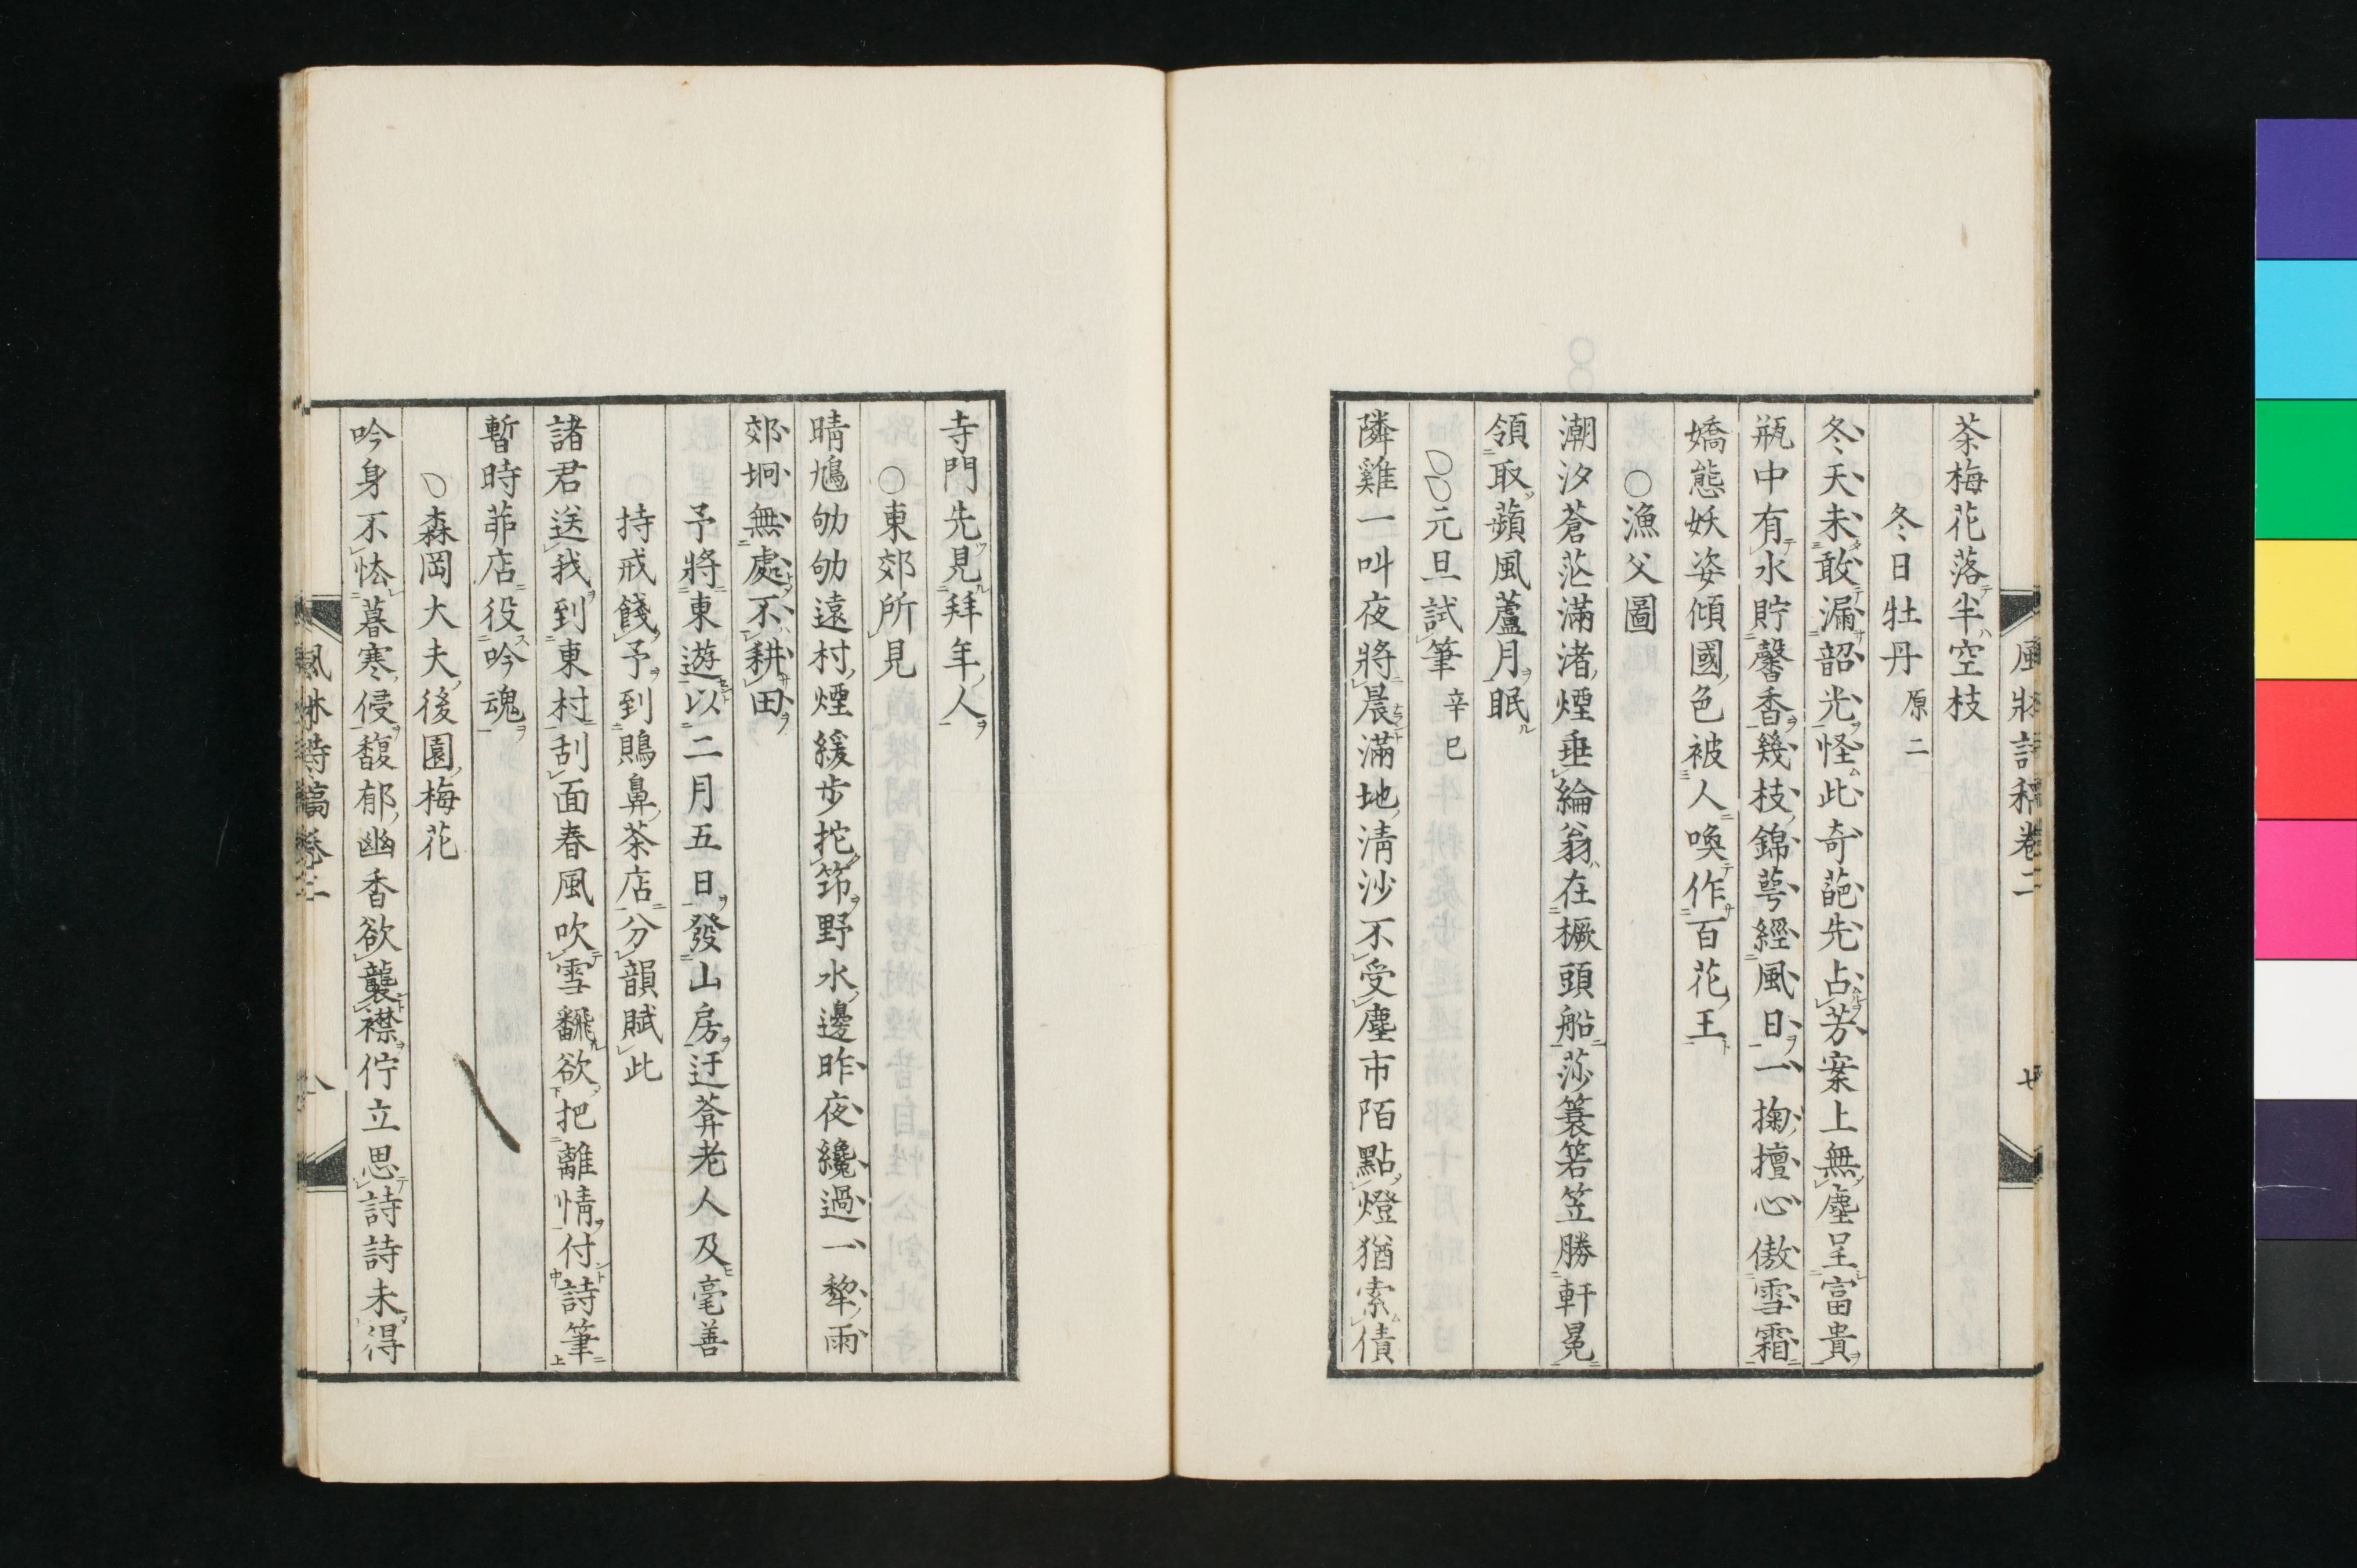 風牀詩稿卷二 七
茶梅花落半空枝
冬日牡丹 原二
冬天未敢漏韶光怪此奇葩先占芳案上無塵呈富貴
瓶中有水貯馨香幾枝錦萼經風日一掬擅心傲雪霜
嬌態妖姿傾國色被人喚作百花王
○漁父圖
潮汐蒼茫滿渚煙垂綸翁在橛頭船莎簑箬笠勝軒冕
領取蘋風蘆月眠
元旦試筆 辛巳
隣雞一叫夜將晨滿地清沙不受塵市陌點燈猶索債
寺門先見拜年人
○東郊所見
晴鳩劬劬遠村煙緩步拕筇野水邊昨夜纔過一犂雨
郊坰無處不耕田
予將東遊以二月五日發山房迂葊老人及毫善
持戒餞予到鵙鼻茶店分韻賦此
諸君送我到東村刮面春風吹雪飜欲把離情付詩筆
暫時茆店役吟魂
森岡大夫後園梅花
吟身不怯暮寒侵馥郁幽香欲襲襟佇立思詩詩未得
風牀詩稿卷二 八